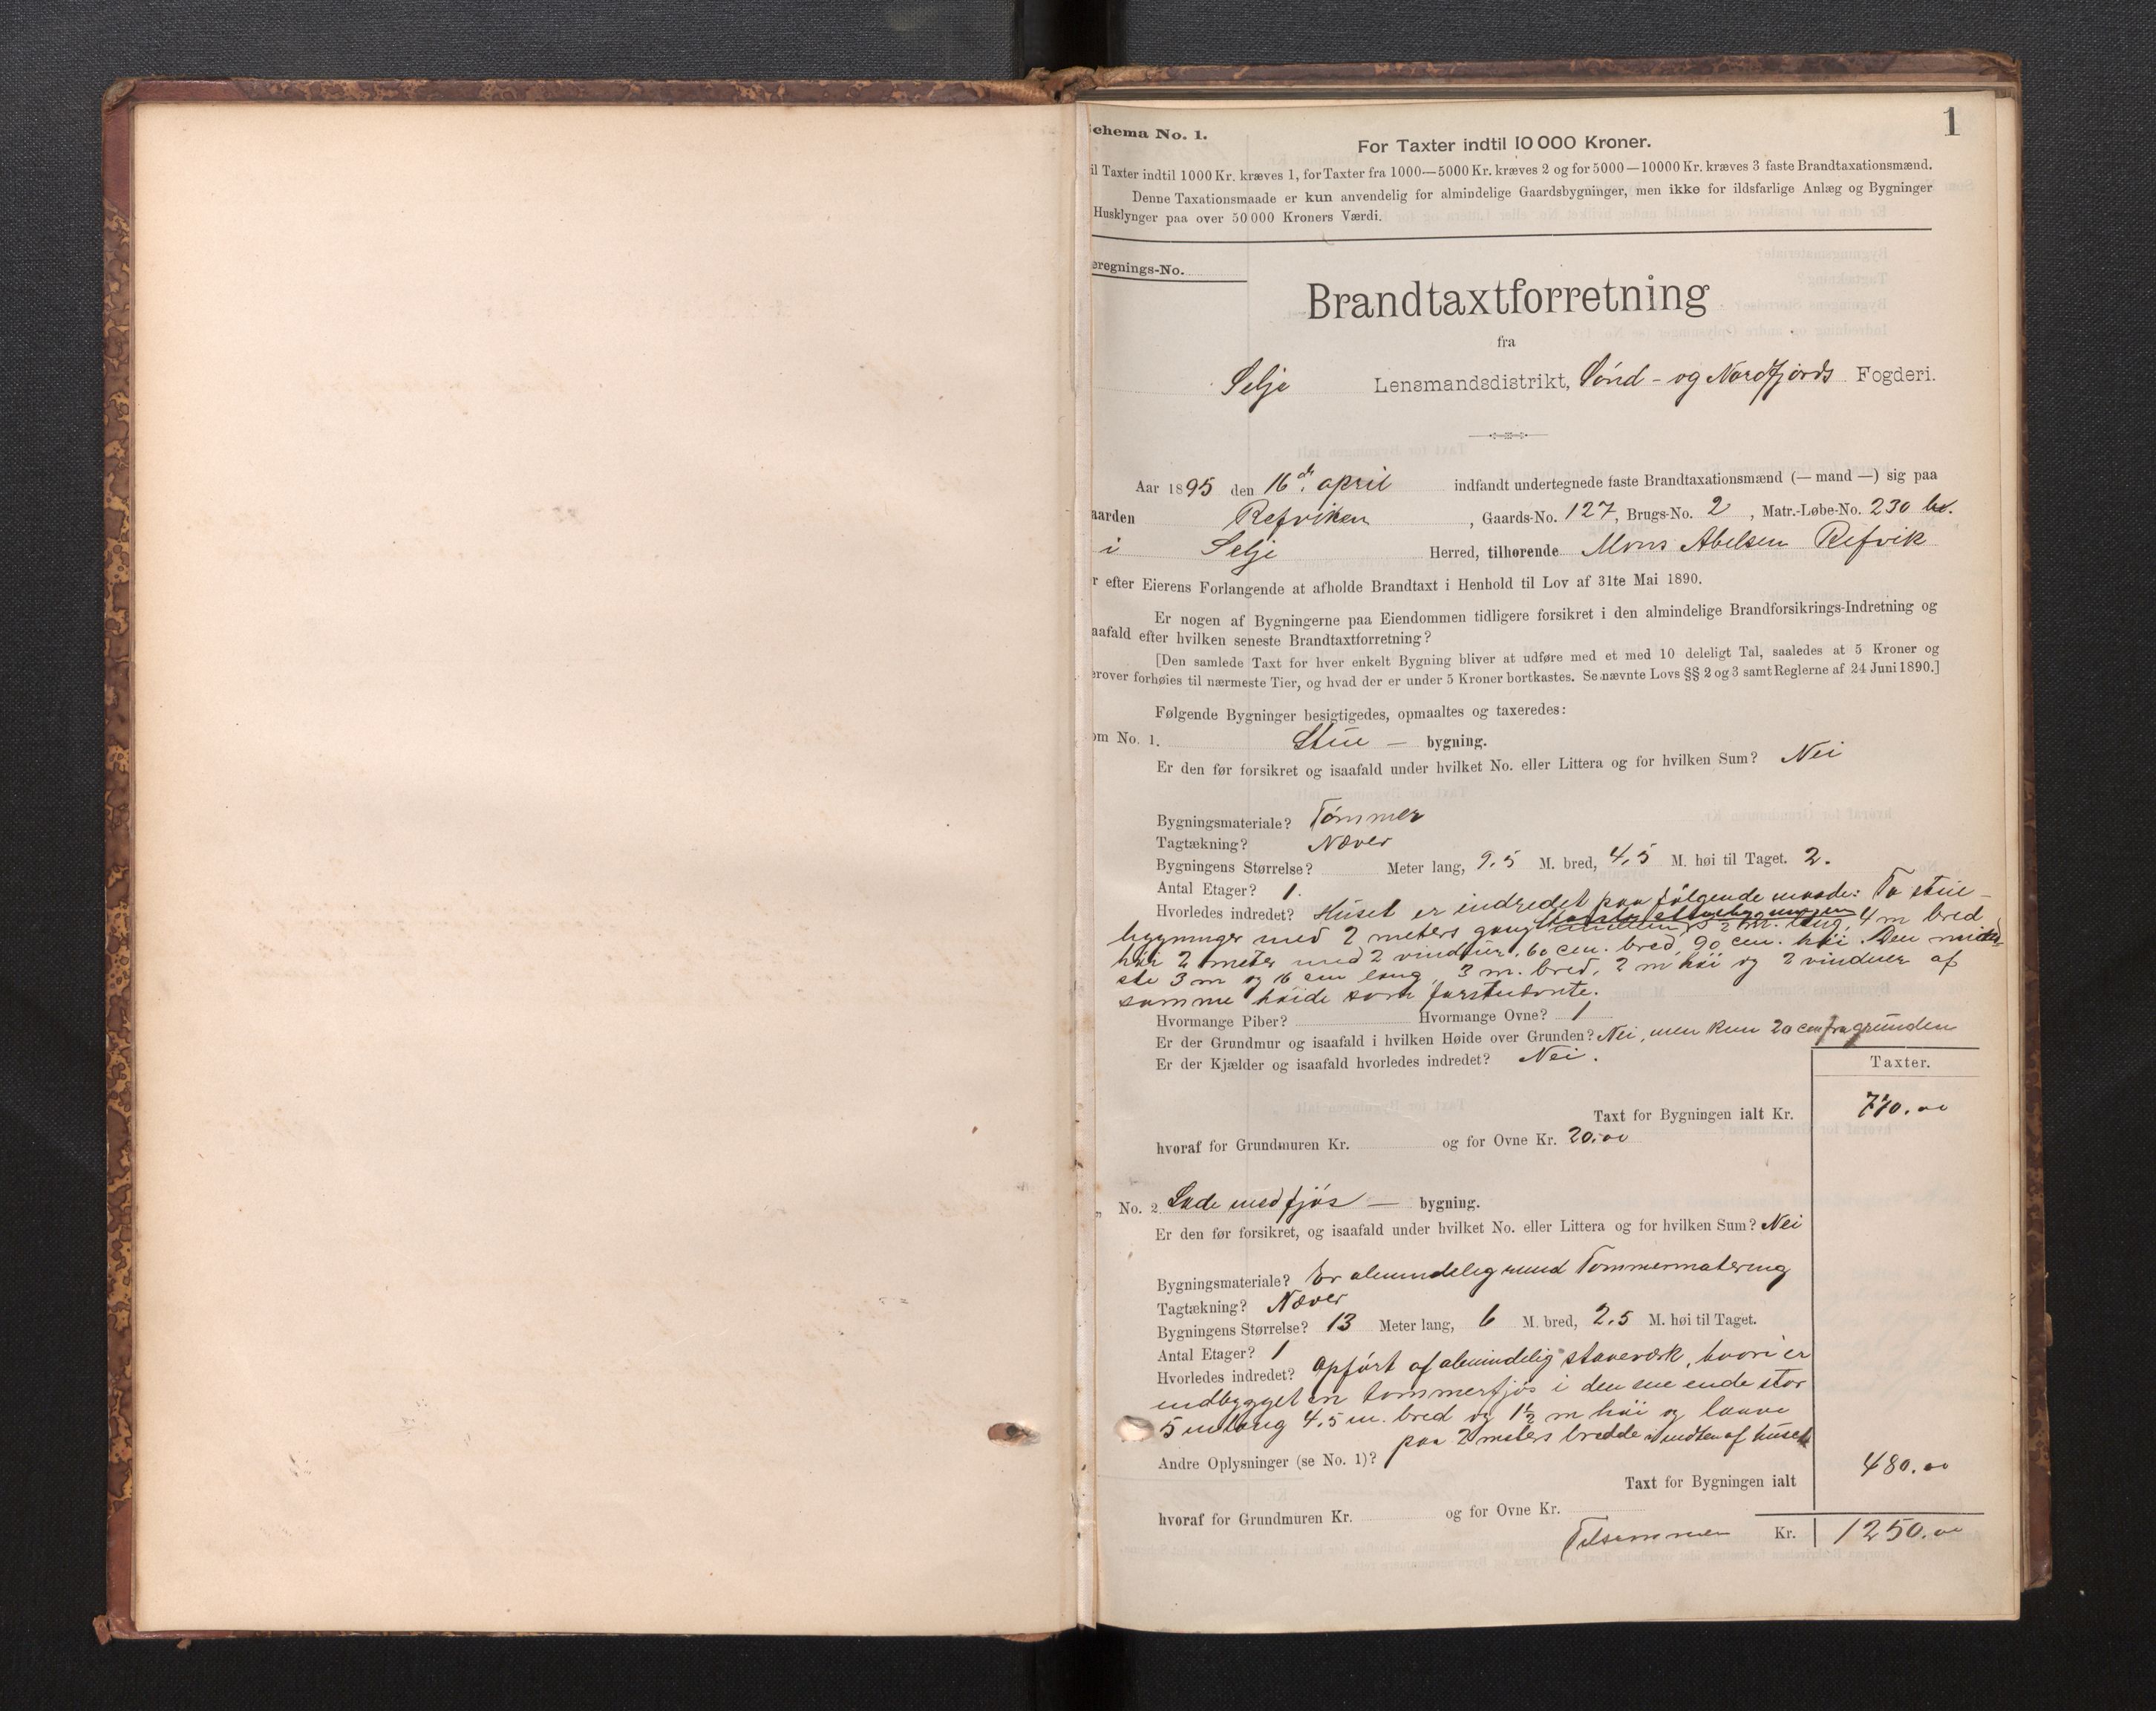 1
chema No. 1.
For Taxter indtil 10 000 Kroner.
il Taxter indtil 1000 Kr. kræves 1, for Taxter fra 1000—5000 Kr. kræves 2 og for 5000—10000 Kr. kræves 3 faste Brandtaxationsmænd.
Denne Taxationsmaade er kun anvendelig for almindelige Gaardsbygninger, men ikke for ildsfarlige Anlæg og Bygninger
Husklynger paa over 50 000 Kroners Værdi.
eregnings-No.
Brandtaxtforretning
fra
Selje Lensmandsdistrikt, Sønd- og Nordfjords Fogderi.
Aar 1895 den 16de april indfandt undertegnede faste Brandtaxationsmænd (— mand —) sig paa
aarden Refviken, Gaards-No. 127, Brugs-No. 2, Matr.-Løbe-No. 230
i Selje Herred, tilhørende Mons Abelsen Refvik
r efter Eierens Forlangende at afholde Brandtaxt i Henhold til Lov af 31te Mai 1890.
Er nogen af Bygningerne paa Eiendommen tidligere forsikret i den almindelige Brandforsikrings-Indretning og
aafald efter hvilken seneste Brandtaxtforretning?
[Den samlede Taxt for hver enkelt Bygning bliver at udføre med et med 10 deleligt Tal, saaledes at 5 Kroner og
erover forhøies til nærmeste Tier, og hvad der er under 5 Kroner bortkastes. Se nævnte Lovs §§ 2 og 3 samt Reglerne af 24 Juni 1890.]
Følgende Bygninger besigtigedes, opmaaltes og taxeredes:
om No. 1. Stue — bygning.
Er den før forsikret og isaafald under hvilket No. eller Littera og for hvilken Sum? Nei
Bygningsmateriale? Tømmer
Tagtækning? Næver
Bygningens Størrelse? Meter lang, 9.5 M. bred, 4.5 M. høi til Taget. 2.
Antal Etager? 1.
Hvorledes indredet? Huset er indredet paa følgende maade: To stue-
bygninger med 2 meters gang 2 m. lang, 4 m bred
høi 2 meter med 2 vinduer, 60 cen. bred 90 cen. høi. Den
ste 3 m og 16 cm lang 3 m. bred, 2 m høi og 2 vinduer af
samme høide som førstnevnte.
Hvormange Piber? Hvormange Ovne? 1
Er der Grundmur og isaafald i hvilken Høide over Grunden? Nei, men kun 20 cen fra grunden
Er der Kjælder og isaafald hvorledes indredet? Nei.
Taxter.
Taxt for Bygningen ialt Kr. 770.00
hvoraf for Grundmuren Kr. og for Ovne Kr. 20.00
„ No. 2. Lade med fjøs — bygning.
Er den før forsikret, og isaafald under hvilket No. eller Littera og for hvilken Sum? Nei
Bygningsmateriale? Er almindelig Tømmermatering
Tagtækning? Næver
Bygningens Størrelse? 13 Meter lang, 6 M. bred, 2.5 M. høi til Taget.
Antal Etager? 1
Hvorledes indredet? Opført af almindelig staveværk, hvori er
indbygget en tømmerfjøs i den ene ende stor
5 m lang 4.5 m. bred og 1½ m høi og laave
paa 2 meters bredde i midten af huset
Andre Oplysninger (se No. 1)?
Taxt for Bygningen ialt 480.00
hvoraf for Grundmuren Kr. og for Ovne Kr.
Tilsammen Kr. 1250.00